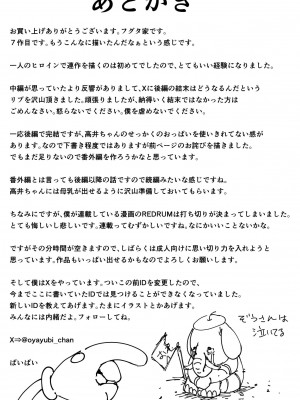 あとがき
お買い上げありがとうございます。フグタ家です。
7作目です。もうこんなに描いたんだなぁという感じです。
一人のヒロインで連作を描くのは初めてでしたので、とてもいい経験になりました。
中編が思っていたより反響があって、Xに後編の結末はどうなるんだという
リプを沢山頂きました。頑張りましたが、納得いく結末ではなかった方は
ごめんなさい。怒らないでください。僕を虐めないでください。
一応後編で完結ですが、高井ちゃんのせっかくのおっぱいを使いきれてない感が
あります。なので下書き程度ではありますが前ページのお詫びを描きました。
でもまだ足りないので番外編を作ろうかなと思っています。
番外編とは言っても後編以降の話ですので続編みたいな感じですね。
高井ちゃんには母乳が出せるように沢山準備しておいてもらいます。
ちなみにですが、僕が連載している漫画のREDRUMは打ち切りが決まってしまいました。
とても悔しいし悲しいです。連載ってむずかしいですね。なにかいいことないかな。
ですがその分時間が空きますので、しばらくは成人向けに思い切り力を入れようと
思っています。作品もいっぱい出せるかもなのでよろしくお願いします。
そして僕はXをやっています。ついこの前IDを変更したので、
今までここに書いていたIDでは見つけることができなくなっていました。
新しいIDを教えてあげます。たまにイラストとかあげます。
みんなには内緒だよ。フォローしてね。
X⇒@oyayubi_chan
ばいばい
ぞうさんは
泣いてる